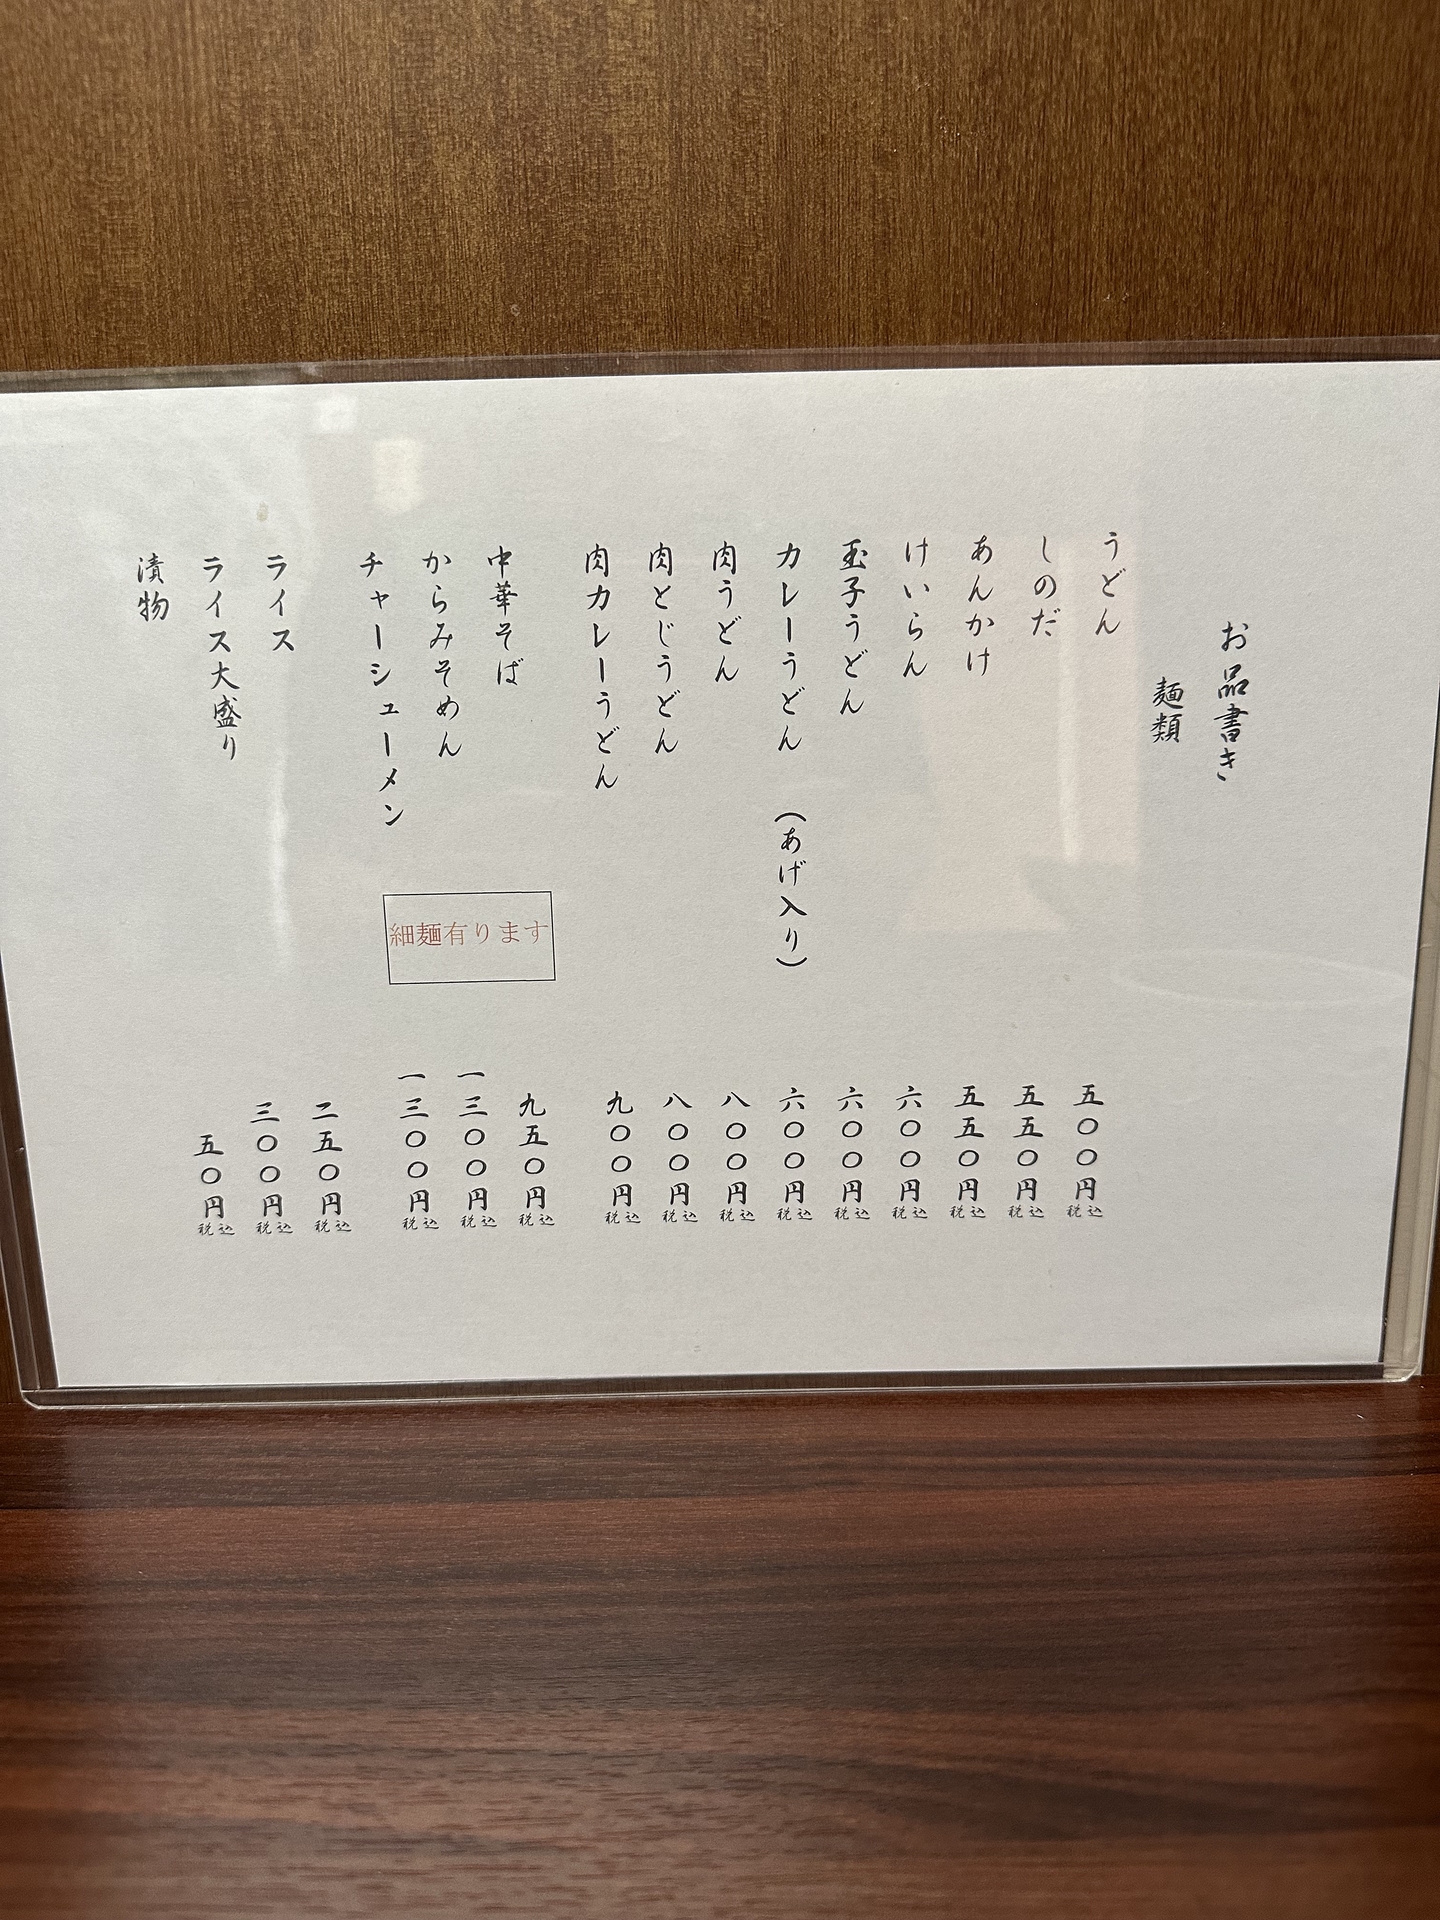 お品書き
麺類
うどん 五〇〇円税込
しのだ 五五〇円税込
あんかけ 五五〇円税込
けいらん 六〇〇円税込
玉子うどん 六〇〇円税込
カレーうどん (あげ入り) 六〇〇円税込
肉うどん 八〇〇円税込
肉とじうどん 八〇〇円税込
肉カレーうどん 九〇〇円税込
中華そば 九五〇円税込
からみそめん 一三〇〇円税込
チャーシューメン 一三〇〇円税込
細麺有ります
ライス 二五〇円税込
ライス大盛り 三〇〇円税込
漬物 五〇円税込